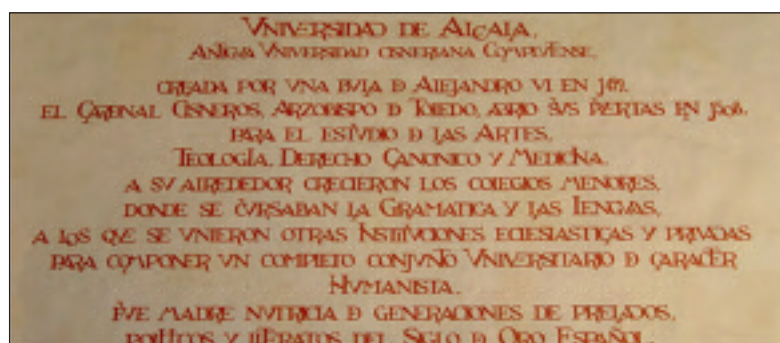 VNIVERSIDAD DE ALCALA,
ANTIGVA VNIVERSIDAD CISNERIANA COMPLVTENSE,
CREADA POR VNA BVLA D ALEJANDRO VI EN
EL CARDENAL CISNEROS, ARZOBISPO D TOLEDO, ABRIO SVS PVERTAS EN 1508.
PARA EL ESTVDIO D LAS ARTES,
TEOLOGIA, DERECHO CANONICO Y MEDICINA.
A SV ALREDEDOR CRECIERON LOS COLEGIOS MENORES,
DONDE SE CVRSABAN LA GRAMATICA Y LAS LENGVAS,
A LOS QVE SE VNIERON OTRAS INSTITVCIONES ECLESIASTICAS Y PRIVADAS
PARA COMPONER VN COMPLETO CONJVNTO VNIVERSITARIO D CARACTER
HVMANISTA.
FVE MADRE NVTRICIA D GENERACIONES DE PRELADOS,
POLITICOS Y LITERATOS DEL SIGLO D ORO ESPAÑOL.